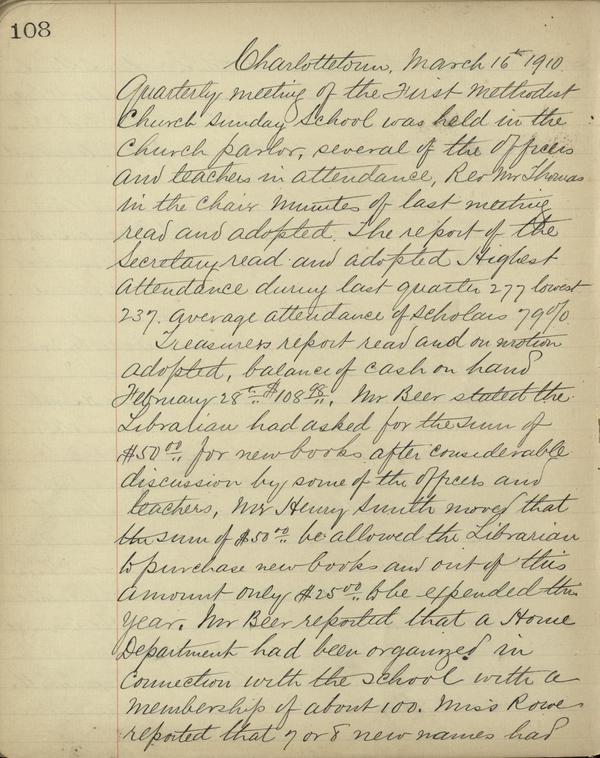 108
Charlottetown, March 16th 1910
Quarterly meeting of the First Methodist
Church Sunday School was held in the
Church parlor, several of the officers
and teachers in attendance, Rev Mr Thomas
in the chair Minutes of last meeting
read and adopted. The report of the
Secretary read and adopted Highest
attendance during last quarter 277 lowest
237. average attendance of scholars 79%
Treasurers report read and on motion
adopted, balance of cash on hand
February 28th $108 98. Mr Beer stated the
Librarian had asked for the sum of
$50 00 for new books after considerable
discussion by some of the officers and
teachers, Mr Henry Smith moved that
the sum of $50 00 be allowed the Librarian
to purchase new books and out of this
amount only $25 00 to be expended this
year. Mr Beer reported that a Home
Department had been organized in
connection with the school with a
membership of about 100. Miss Rowe
reported that 7 or 8 new names had